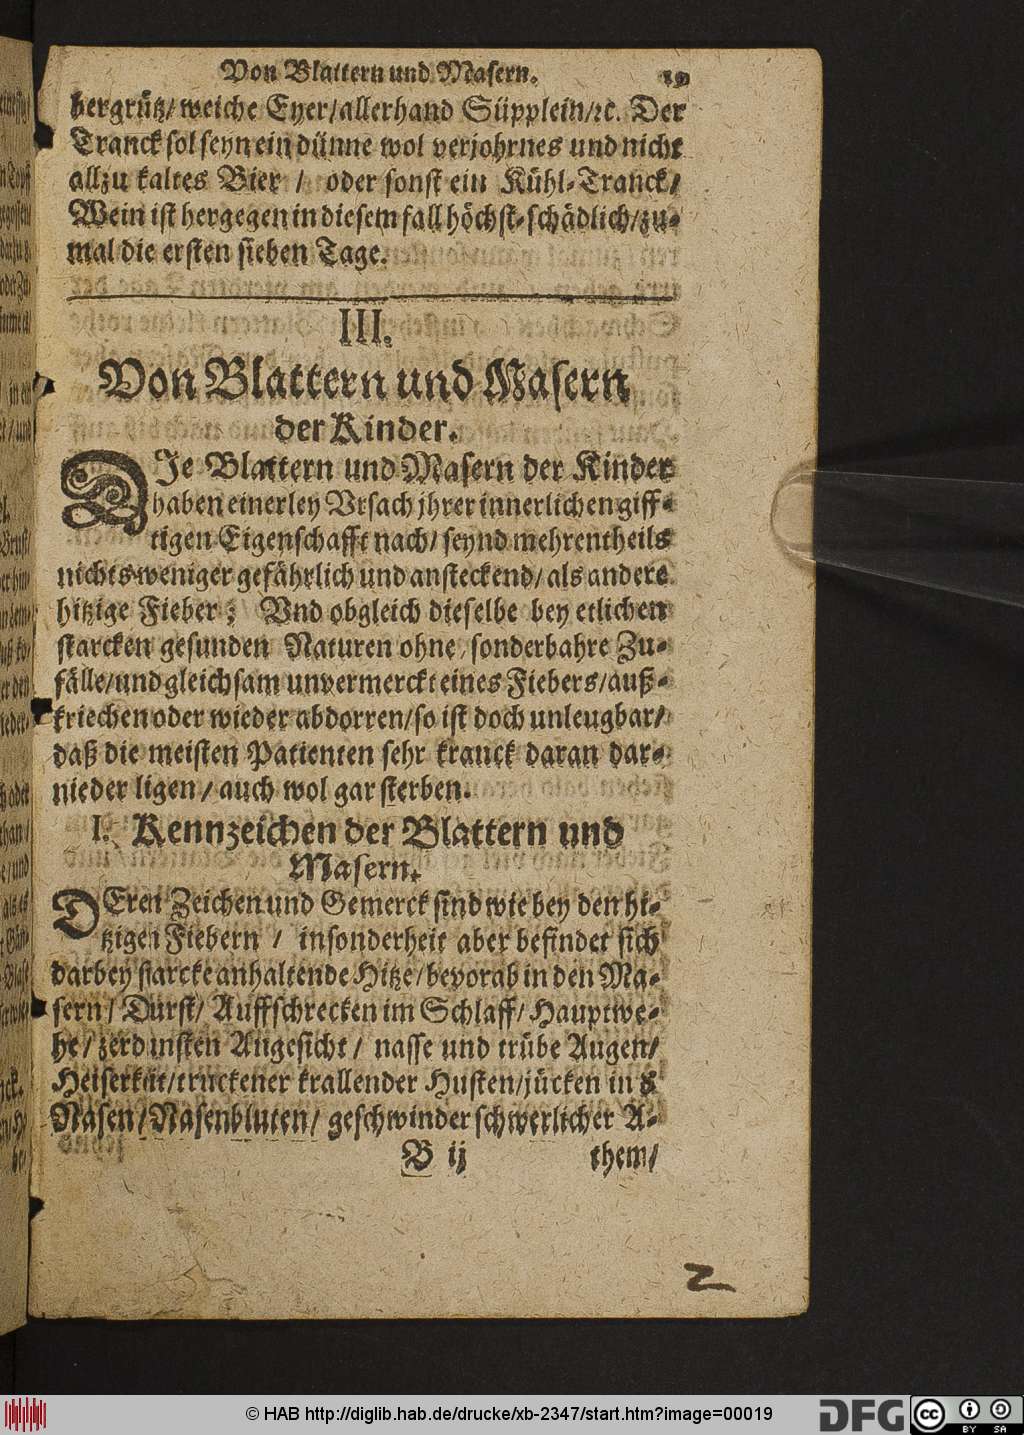 Von Blattern und Masern. 19
bergrütz/ weiche Eyer/ allerhand Süpplein/ ꝛc. Der
Tranck sol seyn ein dünne wol verjohrnes und nicht
allzu kaltes Bier / oder sonst ein Kühl-Tranck/
Wein ist hergegen in diesem fall höchst-schädlich/ zu-
mal die ersten sieben Tage.
III.
Von Blattern und Masern
der Kinder.
DIe Blattern und Masern der Kinder
haben einerley Vrsach jhrer innerlichen giff-
tigen Eigenschafft nach/ seynd mehrentheils
nichts weniger gefährlich und ansteckend/ als andere
hitzige Fieber; Vnd obgleich dieselbe bey etlichen
starcken gesunden Naturen ohne sonderbahre Zu-
fälle/ und gleichsam unvermerckt eines Fiebers/ auß-
kriechen oder wieder abdorren/ so ist doch unleugbar/
daß die meisten Patienten sehr kranck daran dar-
nieder ligen/ auch wol gar sterben.
I. Kennzeichen der Blattern und
Masern.
DEren Zeichen und Gemerck sind wie bey den hi-
tzigen Fiebern / insonderheit aber befindet sich
darbey starcke anhaltende Hitze/ bevorab in den Ma-
sern/ Durst/ Auffschrecken im Schlaff/ Hauptwe-
he/ zerdunsten Angesicht/ nasse und trübe Augen/
Heiserkeit/ truckener krallender Husten/ jücken in d
Nasen/ Nasenbluten/ geschwinder schwerlicher A-
B ij them/
2
© HAB http://diglib.hab.de/drucke/xb-2347/start.htm?image=00019
DFG
cc BY SA